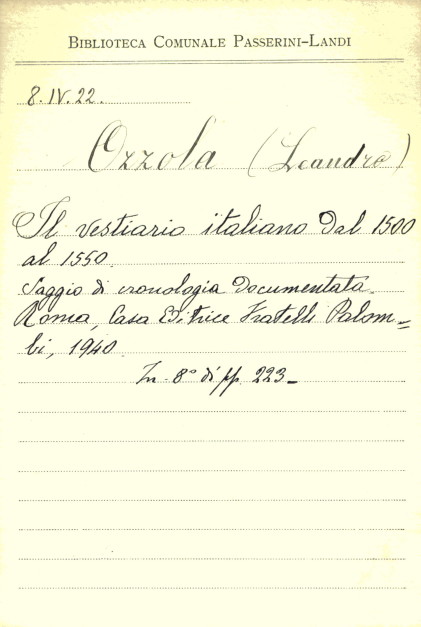 BIBLIOTECA COMUNALE PASSERINI-LANDI
8.IV.22.
Ozzola (Leandro)
Il vestiario italiano dal 1500
al 1550.
Saggio di cronologia documentata.
Roma, Casa Editrice Fratelli Palom=
bi, 1940.
In 8° di pp. 223-